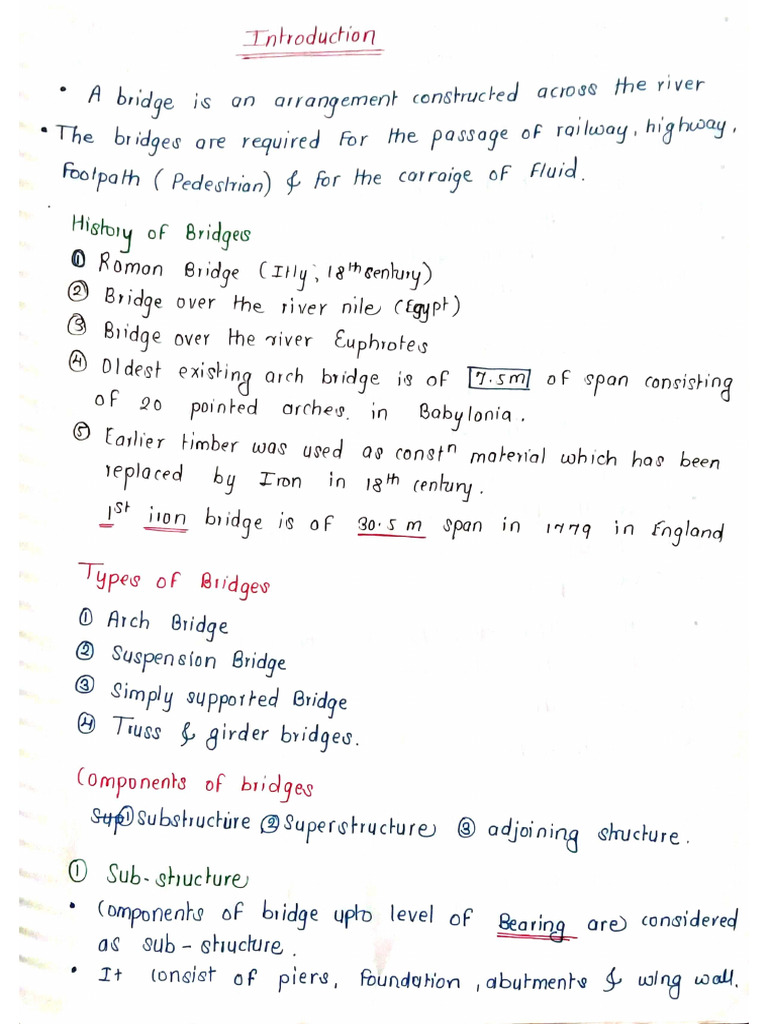 Introduction
• A bridge is an arrangement constructed across the river
• The bridges are required for the passage of railway, highway,
footpath (Pedestrian) & for the carraige of fluid.
History of Bridges
① Roman Bridge (Itly, 18th century)
② Bridge over the river nile (Egypt)
③ Bridge over the river Euphrotes
④ Oldest existing arch bridge is of 7.5m of span consisting
of 20 pointed arches. in Babylonia.
⑤ Earlier timber was used as constn material which has been
replaced by Iron in 18th century.
1st iron bridge is of 30.5 m span in 1779 in England
Types of Bridges
① Arch Bridge
② Suspension Bridge
③ Simply supported Bridge
④ Truss & girder bridges.
Components of bridges
Sup ① Substructure ② Superstructure ③ adjoining structure.
① Sub-structure
• Components of bridge upto level of Bearing are considered
as sub-structure.
• It consist of piers, foundation, abutments & wing wall.